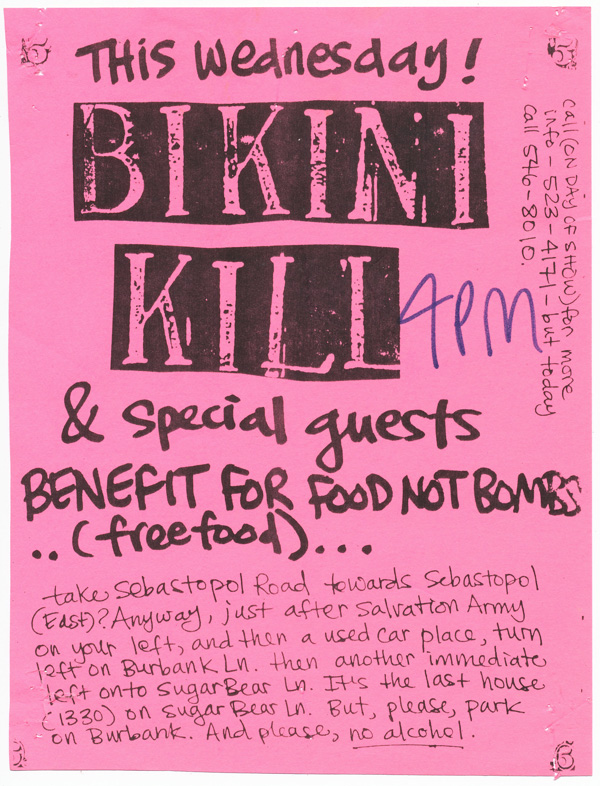 THis wednesday!
BIKINI
KILL
4PM
& special guests
BENEFIT FOR FOOD NOT BOMBS
..(free food)...
take Sebastopol Road towards Sebastopol
(East)? Anyway, just after Salvation Army
on your left, and then a used car place, turn
left on Burbank Ln. then another immediate
left onto Sugar Bear Ln. It's the last house
(1330) on Sugar Bear Ln. But, please, park
on Burbank. And please, no alcohol.
call (ON DAY OF SHOW) for more
info - 523-4171 - but today
call 546-8010.